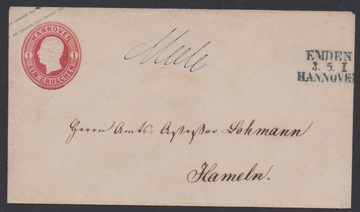 HANNOVER
1 1
EIN GROSCHEN
EMDEN
3. 5. 1
HANNOVER
Herrn Amts-Assessor Lohmann
Hameln.